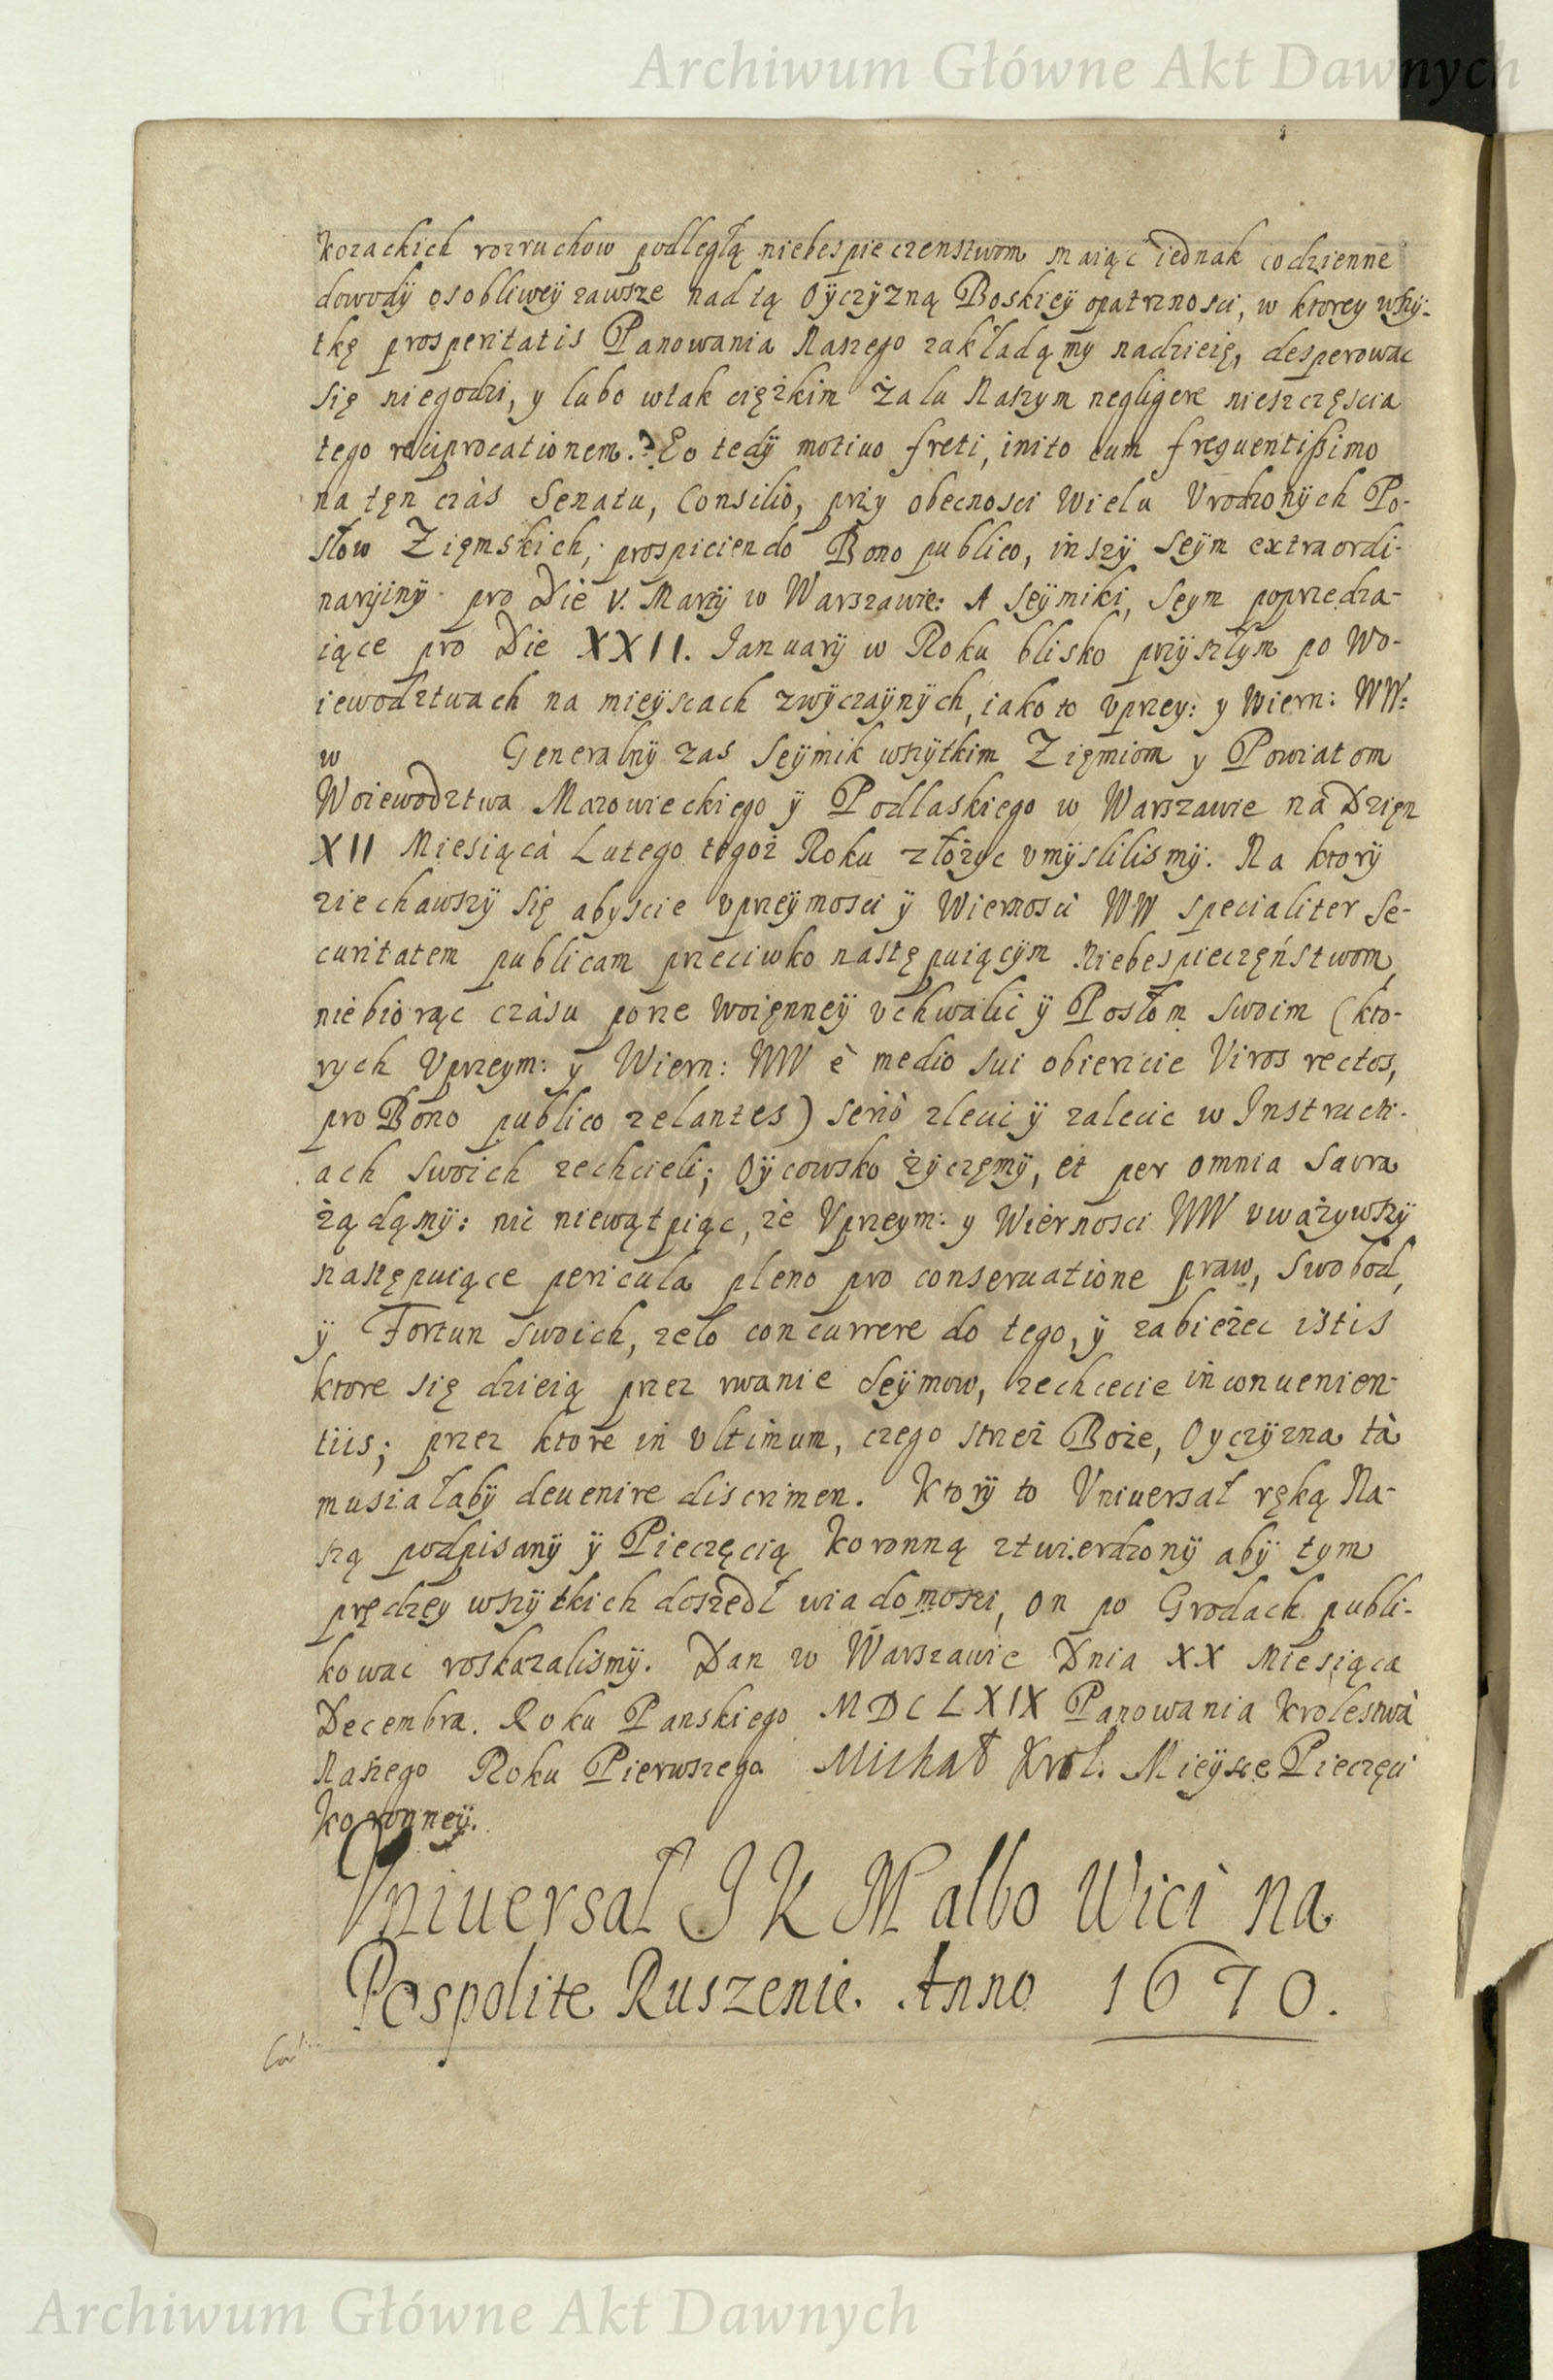 Archiwum Główne Akt Dawnych
kozackich rozruchow podległą niebespieczenstwom maiąc iednak codzienne
dowodÿ osobliweÿ zawsze nad tą OÿczÿZną Boskieÿ opatrznosci, w ktorey wszÿ-
tkę prosperitatis Panowania Naszego zakładąmy nadzieię, desperowac
się niegodzi, y lubo wtak ciężkim Żalu Naszym negligere nieszczęscia
tego reciprocationem.? Eo tedÿ motiuo freti, inito cum frequentißimo
na tęn czàs Senatu, Consilio, przy obecnosci Wielu Vrodzonÿch Po-
słow Zięmskich, prospiciendo Bono publico, inszÿ Seÿm extraordi-
narÿinÿ pro Die V. Marÿ w Warszawie: A Seÿmiki, Seym poprzedza-
iące pro Die XXII. Ianuarÿ w Roku blisko przÿszłym po Wo-
iewodztwach na mieÿscach zwÿczaÿnÿch, iako to vprzey: y Wiern: WW:
w Generalnÿ zas Seÿmik wszÿtkim Zięmiom y Powiatom
Woiewodztwa Mazowieckiego ÿ Podlaskiego w Warszawie na Dzięn
XII Miesiącà Lutego tegoż Roku złożyc vmÿslilismÿ. Na ktorÿ
ziechawszÿ się abyscie vprzeÿmosci ÿ Wiernosci WW specialiter Se-
curitatem publicam przeciwko nastę puiącÿm Niebespieczęństwom,
niebiorąc czàsu porze Woięnneÿ vchwalić ÿ Posłom Swoim (kto-
rych Vprzeym: y Wiern: WW è medio sui obierzcie Viros rectos,
pro Bono publico zelantes) seriò zlecic ÿ zalecic w Instructi-
ach Swoich zechcieli; Oÿcowsko życzęmÿ, et per omnia Sacra
żądąmÿ: nic niewątpiąc, że Vprzeym: y Wiernosci WW vważywszÿ
następuiące pericula pleno pro conseruatione praw, Swobod,
ÿ Fortun Swoich, zelo concurrere do tego, ÿ zabieżec istis
ktore się dzieią przez rwanie Seÿmow, zechcecie inconuenien-
tiis; przez ktore in vltimum, czego strzeż Boże, Oyczÿzna tà
musiałabÿ deuenire discrimen. Ktorÿ to Vniuersał ręką Na-
szą podpisanÿ ÿ Pieczęcią Koronną ztwierdzonÿ abÿ tym
prędzey wszÿtkich doszedł wiadomosci, on po Grodach publi-
kowac roskazalismÿ. Dan w Warszawie Dnia XX Miesiąca
Decembra. Roku Panskiego MDCLXIX Panowania Krolestwà
Naszego Roku Pierwszego. Michał Krol. Mieÿsce Pieczęci
Koronneÿ.
Vniuersał J K M albo Wici na
Pospolite Ruszenie. Anno 1670.
Archiwum Główne Akt Dawnych